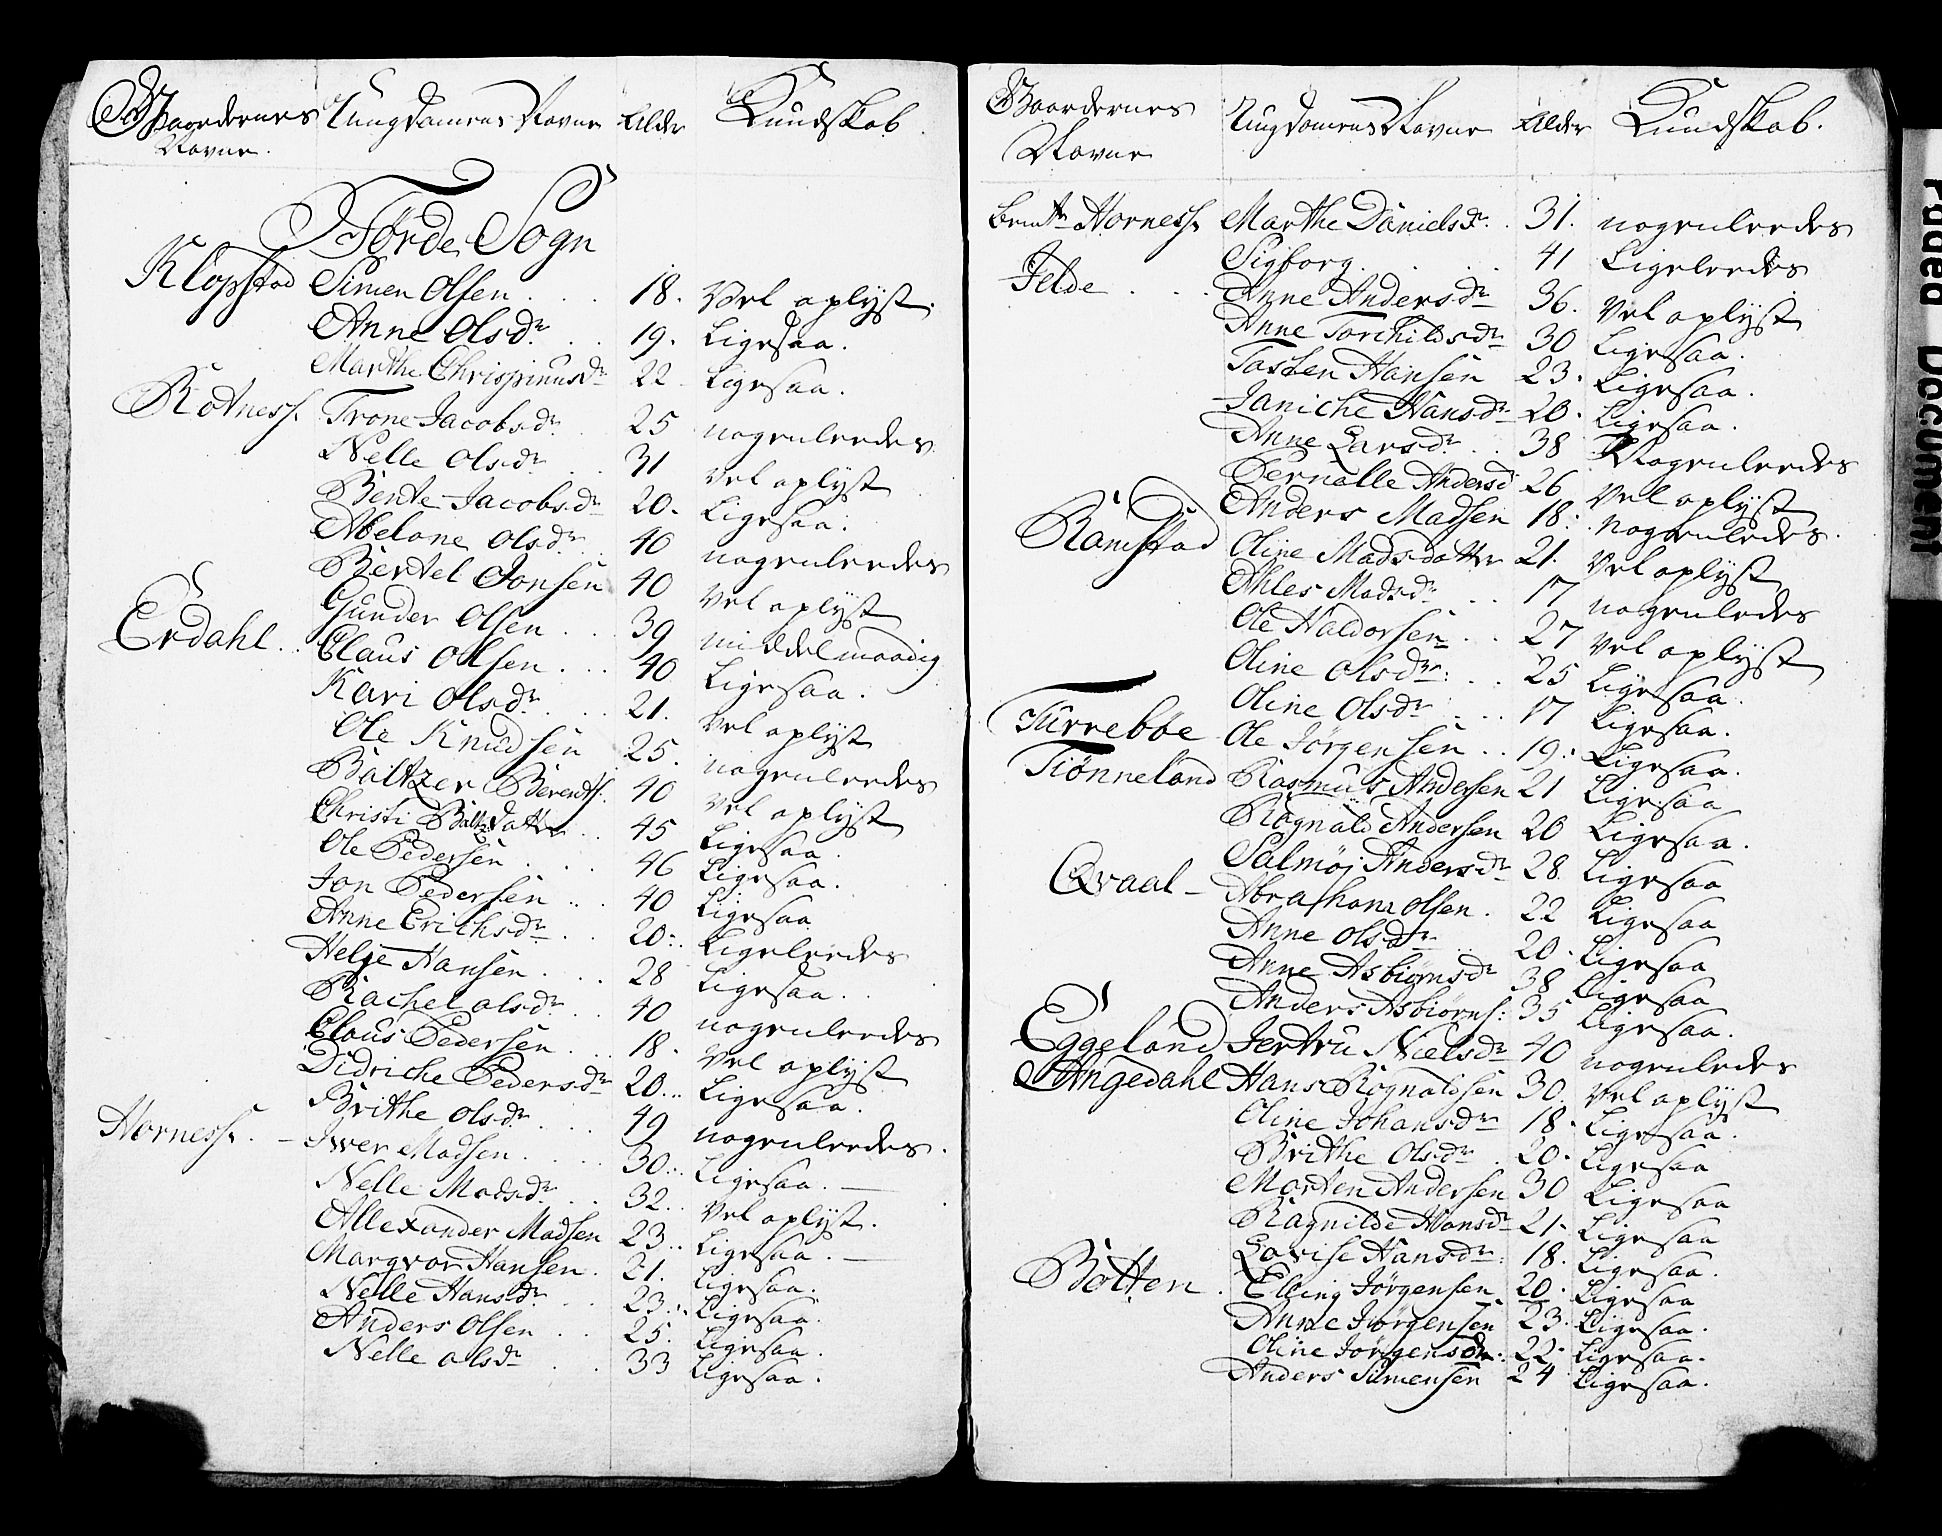 Gaardernes Navne. Ungdomens Navne Alder Kundskab.
Förde Sogn
Klopstad Simen Olsen . . . 18. Vel oplyst.
Anne Olsdr. . . 19. Ligesaa.
Marthe Chrispinusdr 22 Ligesaa.
Rotness. Trone Jacobsdr. 25 nogenleedes
Nelle Olsdr . . 31 vel oplyst
Bente Jacobsdr 20. Ligesaa.
Abelone Olsdr. . 40 nogenleedes
Bertel Jonsen 40 vel oplyst
Erdahl. . Gunder Olsen . . . 39 middelmaadig
Claus Olsen . . . 40 Ligesaa.
Kari Olsdr . . . 21. vel oplyst
Ole Knudsen 25. nogenleedes
Baltzer Berents. 40 vel oplyst
Christi Baltzdatter . . 45 Ligesaa.
Ole Pedersen . . . . 46 Ligesaa.
Jon Pedersen . . . 40 Ligesaa
Anne Erichsdr . . . 20. Ligeleedes
Helge Hansen . . . 28 Ligesaa. .
Rachel olsdr . . 40 nogenleedes
Claus Pedersen . . . 18. Vel oplyst
Didriche Pedersdr 20. . Ligesaa.
Brithe olsdr . . . 49 nogenleedes.
Horness. – Iver Madsen . . . . 30. . Ligesaa. –
Nelle Madsdr . . . 32. . vel oplyst.
Allexander Madsen 23. . Ligesaa. –
Margvor Hansen . 21. Ligesaa.
Nelle Hansdr . . . 23. . Ligesaa.
Anders Olsen . . . 25. Ligesaa.
Nelle olsdr . . . 33 Ligesaa.
Gaardernes Navne Ungdomens Navne Alder Kundskab.
Horness. Marthe Danielsdr. . 31. nogenleedes
Sigborg . . . . 41 Ligeleedes
Jelde . . . Anne Andersdr 36. Vel oplyst
Anne Torchildsdr 30 Ligesaa.
Tasten Hansen 23. Ligesaa.
Janiche Hansdr 20. Ligesaa.
Anne Larsdr. . . 38 Nogenleedes
Pernalle Andersd 26 Vel oplyst
Ramstad Anders Madsen 18. nogenledes.
Oline Madsdatter 21. Vel oplyst
Ahles Madsdr . . . 17 nogenledes
Ole Haldorsen . . . 27 Vel oplyst
Oline olsdr. . . . 25 Ligesaa.
Oline Olsdr . . . 17 Ligesaa.
Turreböe Ole Jørgensen . . 19. Ligesaa.
Tiønneland Rasmus Andersen 21 Ligesaa
Rognald Andersen 20 Ligesaa.
Salmøj Andersdr 28 Ligesaa
Qvaal – Abraham olsen . 22 Ligesaa
Anne olsdr . . 20. Ligesaa
Anne Asbiörnsdr 38 Ligesaa
Anders Asbiörns: 35 Ligesaa.
Eggeland Jertru Nielsdr 40 nogenledes
Angedahl Hans Rognaldsen 30. Vel oplyst
Oline Johansdr 18. Ligesaa.
Brithe Olsdr . 20. Ligesaa
Morten Andersen 30 Ligesaa
Ragnilde Hansdr 21. Ligesaa
Lovise Hansdr. 18. Ligesaa.
Botten . Elling Jørgensen 20. Ligesaa
Anne Jørgensen 23. Ligesaa.
Oline Jørgensdr. 22. Ligesaa.
Anders Simensen 24 Ligesaa.
Document